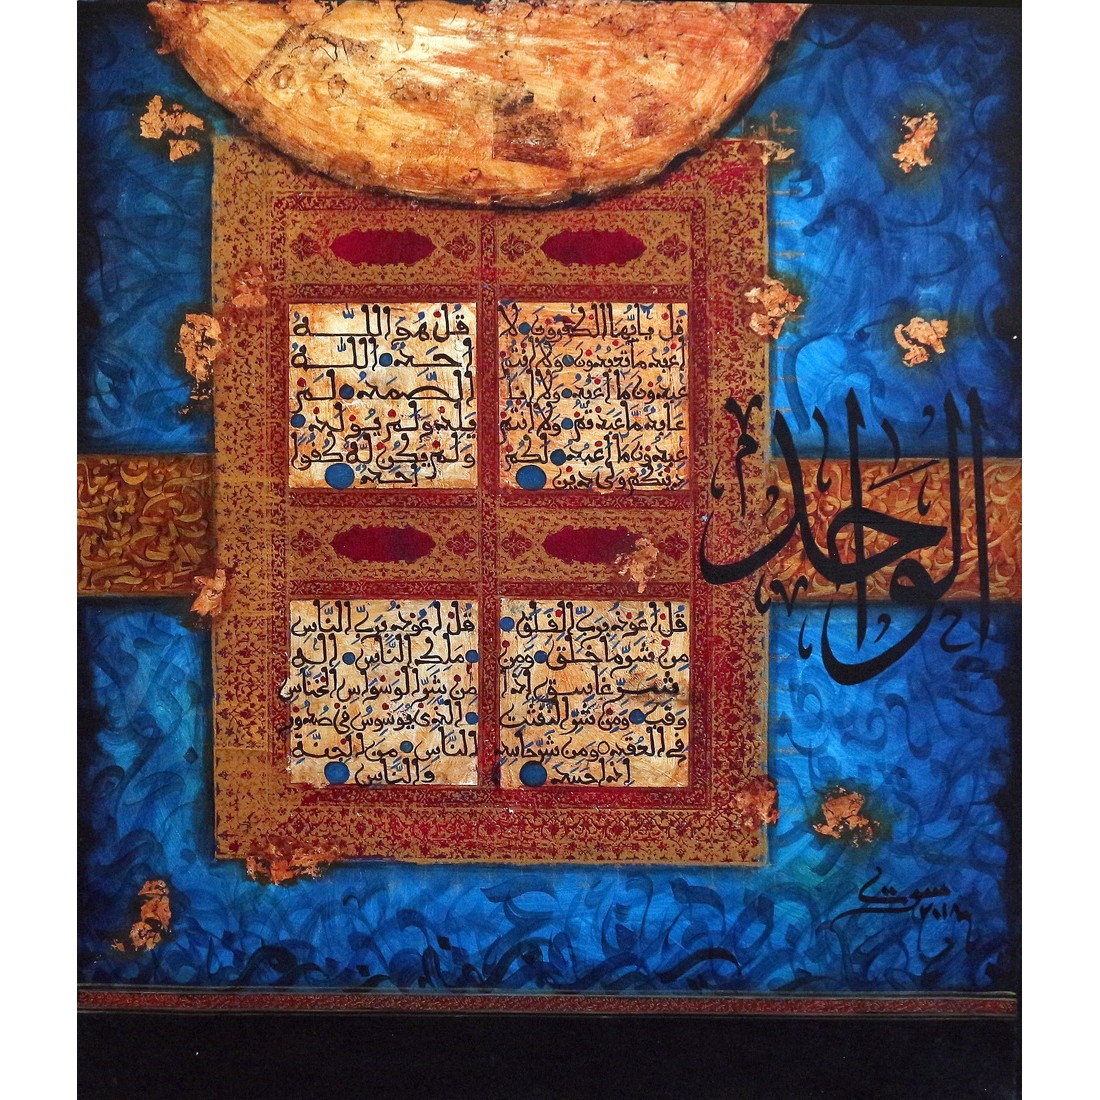 قل يايها الكفرون لا
اعبد ما تعبدون ولا انتم
عبدون ما اعبد ولا انا
عابد ما عبدتم ولا انتم
عبدون ما اعبد لكم
دينكم ولي دين
قل هو الله
احد الله
الصمد لم
يلد ولم يولد
ولم يكن له كفوا
احد
الواحد
قل اعوذ برب الفلق
من شر ما خلق ومن
شر غاسق اذا
وقب ومن شر النفثت
في العقد ومن شر حاسد
اذا حسد
قل اعوذ برب الناس
ملك الناس اله
من شر الوسواس الخناس
الذي يوسوس في صدور
الناس من الجنة
والناس
٢٠١٨